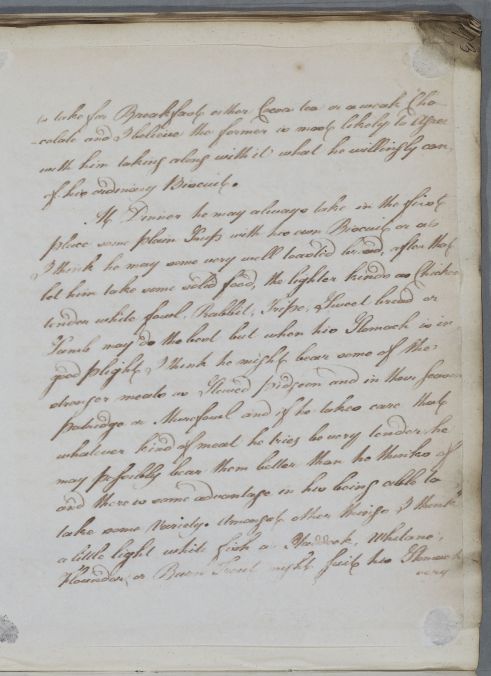 to take for Breakfast either Cocoa tea or a weak Cho
-colate and I believe the former is most likely to agree
with him taking along with it what he willingly can
of his ordinary Biscuit.
At Dinner he may always take in the first
place some plain Soup with his own Biscuit or as
I think he may some very well toasted bread, after that
let him take some solid food, the lighter kinds as Chicken
tender white fowl, Rabbit, Tripe, Sweet bread or
Lamb may do the best but when his Stomach is in
good plight I think he might bear some of the
stronger meats as Stewed pidgeon and in their season
patridge or Muirfowl and if he takes care that
whatever kind of meat he tries be very tender, he
may possibly bear them better than he thinks of
and there is some advantage in his being able to
take some Variety. Amongst other things I think
a little light white fish as Haddock, Whitens,
Flounders, or Burn Trout might suit his Stomach
very